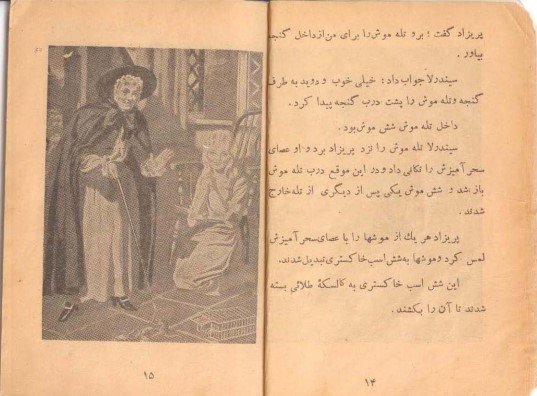 پریزاد گفت ؛ برو تله موش را برای من از داخل گنجه
بیاور .
سیندرلا جواب داد : خیلی خوب و دوید به طرف
گنجه و تله موش را پشت درب گنجه پیدا کرد .
داخل تله موش شش موش بود .
سیندرلا تله موش را نزد پریزاد برد و او عصای
سحر آمیزش را تکانی داد و در این موقع درب تله موش
باز شد و شش موش یکی پس از دیگری از تله خارج
شدند .
پریزاد هر یك از موشها را با عصای سحر آمیزش
لمس کرد و موشها به شش اسب خاکستری تبدیل شدند .
این شش اسب خاکستری به کالسکهٔ طلائی بسته
شدند تا آن را بکشند .
۱۴
۱۵